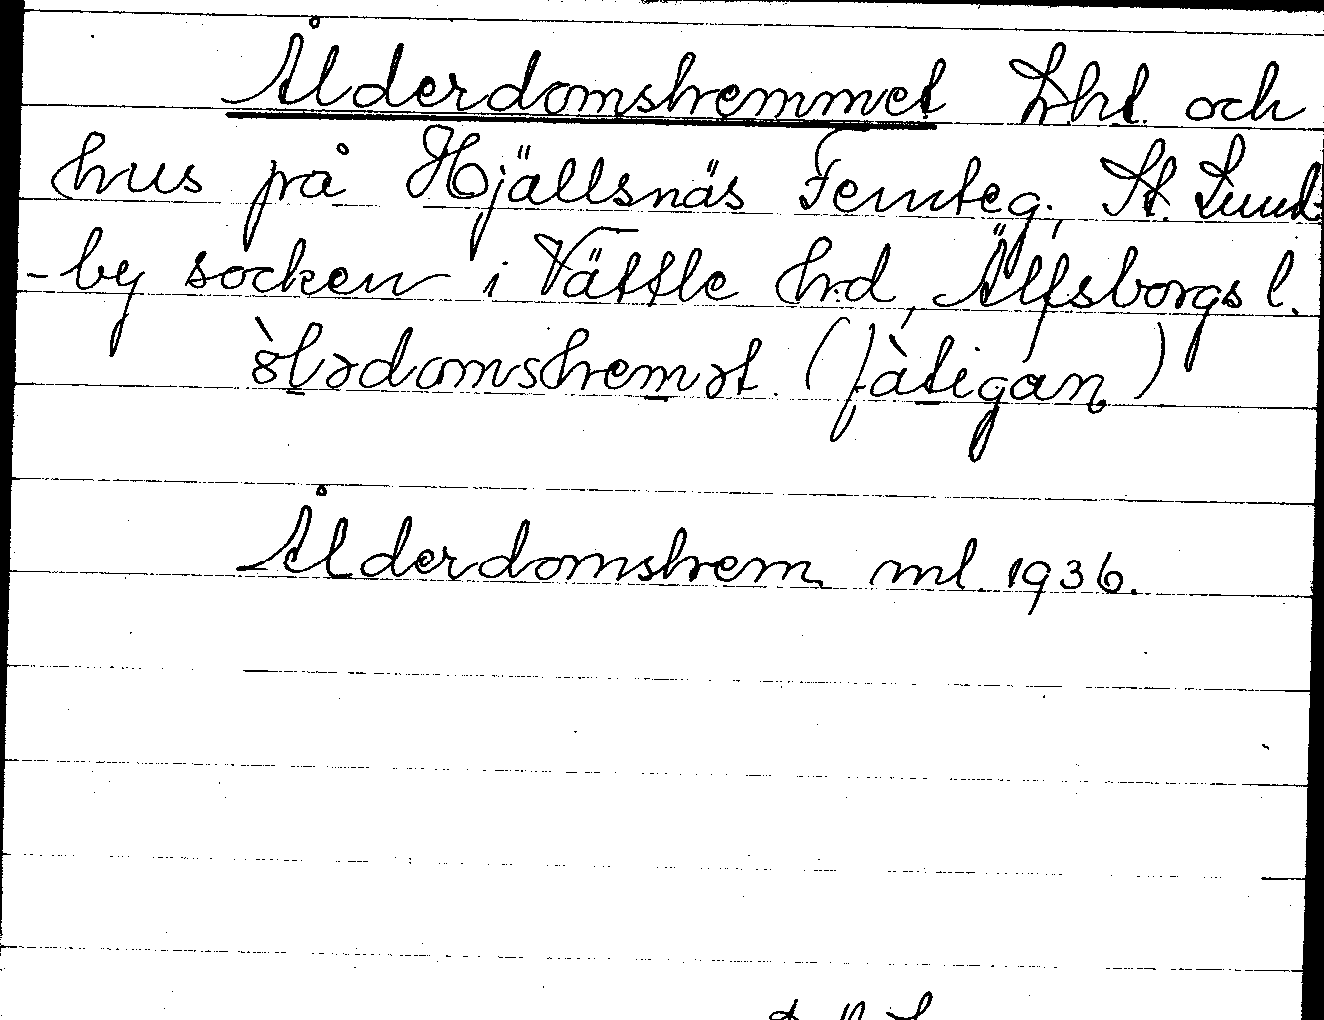 Ålderdomshemmet Lht. och
hus på Hjällsnäs Femteg., St. Lund-
-by socken i Vättle hrd, Älfsborgs l.
ò̀lɘdomshemɘt. (fàtigan)
Ålderdomshem ml. 1936.